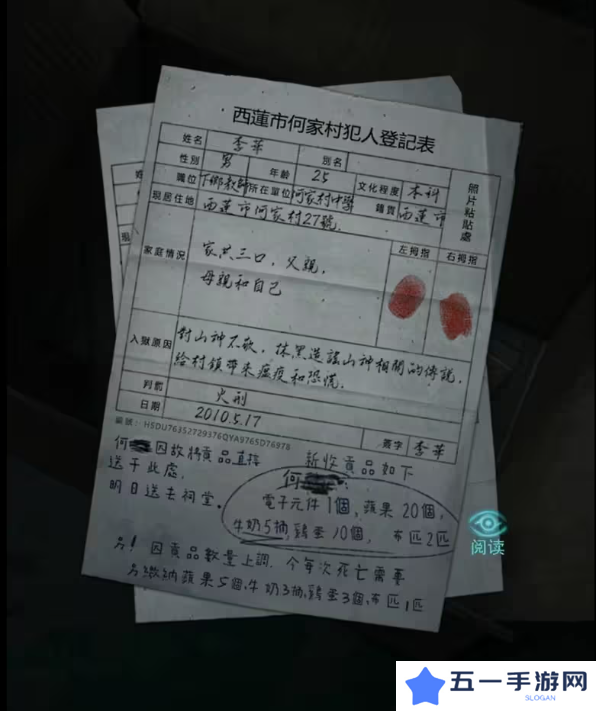 西蓮市何家村犯人登記表
姓名 李華 別名
性別 男 年齡 25 文化程度 本科
職位 下鄉教師 所在單位 何家村中學 籍貫 西蓮市
現居住地 西蓮市何家村27號.
照片粘貼處
家庭情況 家共三口,父親,
母親和自己
左拇指 右拇指
入獄原因 對山神不敬,抹黑造謠山神相關的傳說,
給村鎮帶來瘟疫和恐慌.
判罰 火刑
日期 2010.5.17 簽字 李華
編號:HSDU76352729376QYA9765D76978
何 因故將貢品直接
送于此處.
明日送去祠堂.
新收貢品如下
何
電子元件1個,蘋果20個,
牛奶5抽,鷄蛋10個, 布匹2匹
另! 因貢品數量上調.今每次死亡需要
另繳納蘋果5個,牛奶3抽,鷄蛋3個,布匹1匹
阅读
五一手游网
SLOGAN